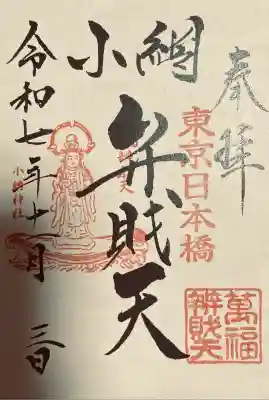 奉拝
東京日本橋
小網
弁財天
萬福
辨財天
小網神社
令和七年十月三日